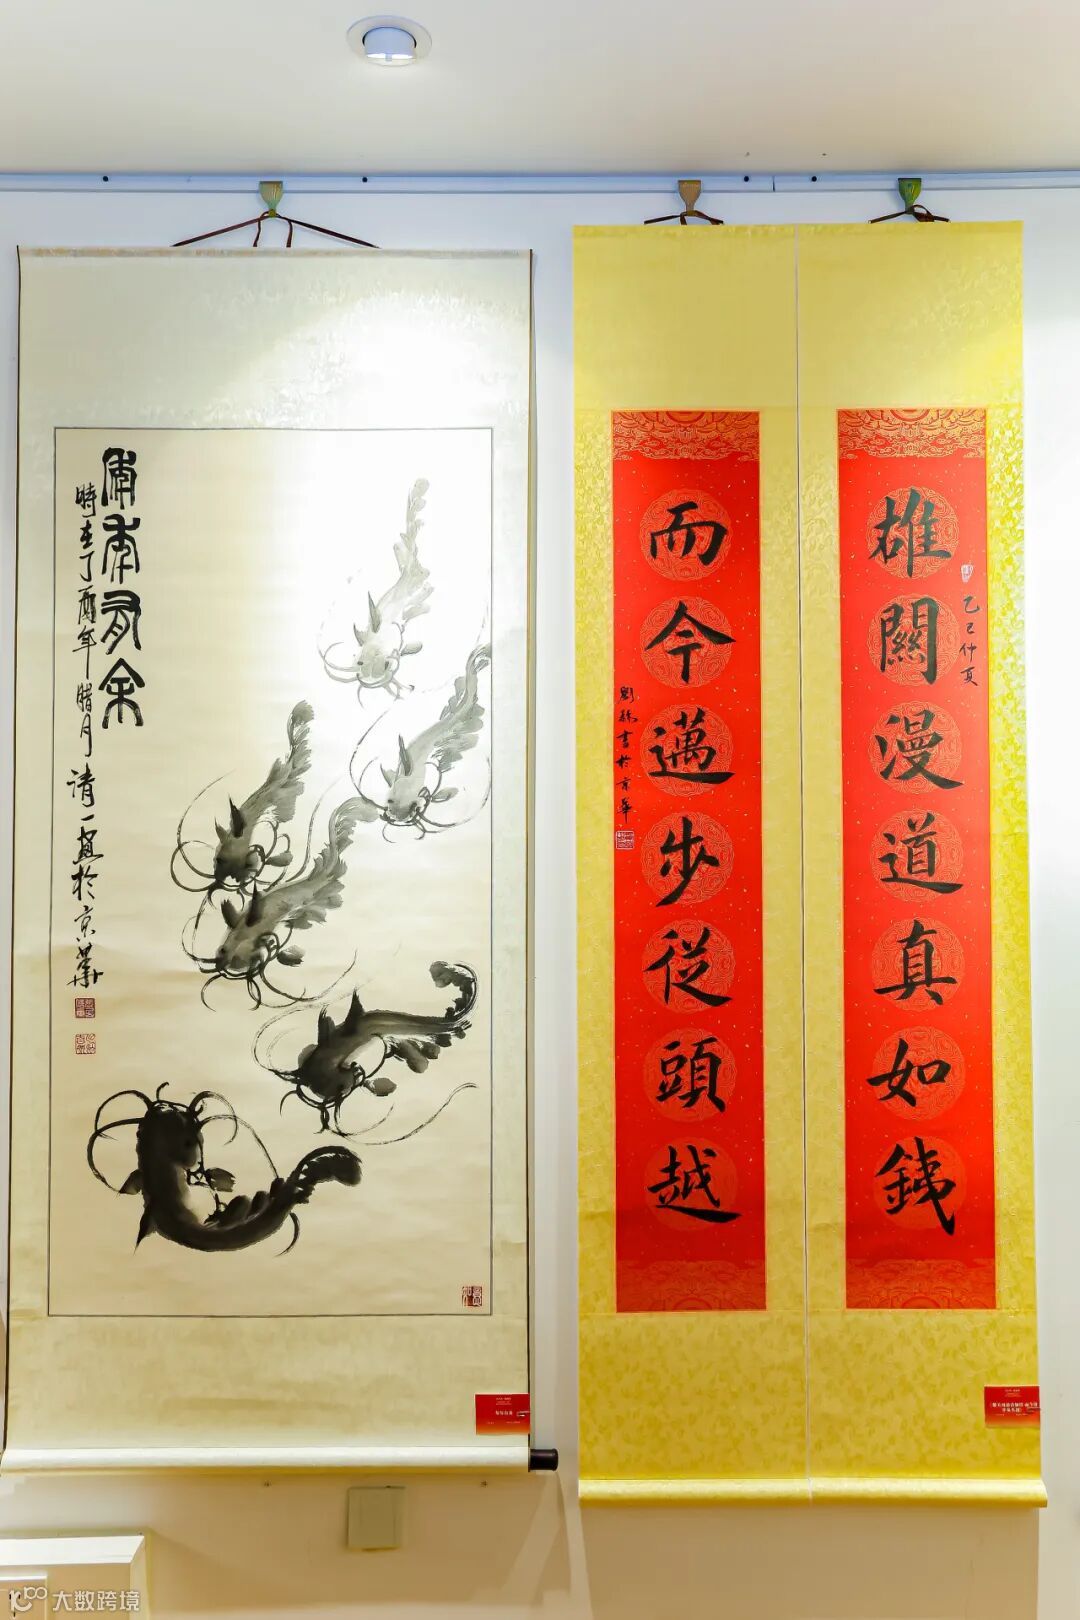 雄關漫道真如鐵
乙巳仲夏
而今邁步從頭越
劉	書於京華
年年有余
時在丁酉年腊月请一画於京華
大数跨境